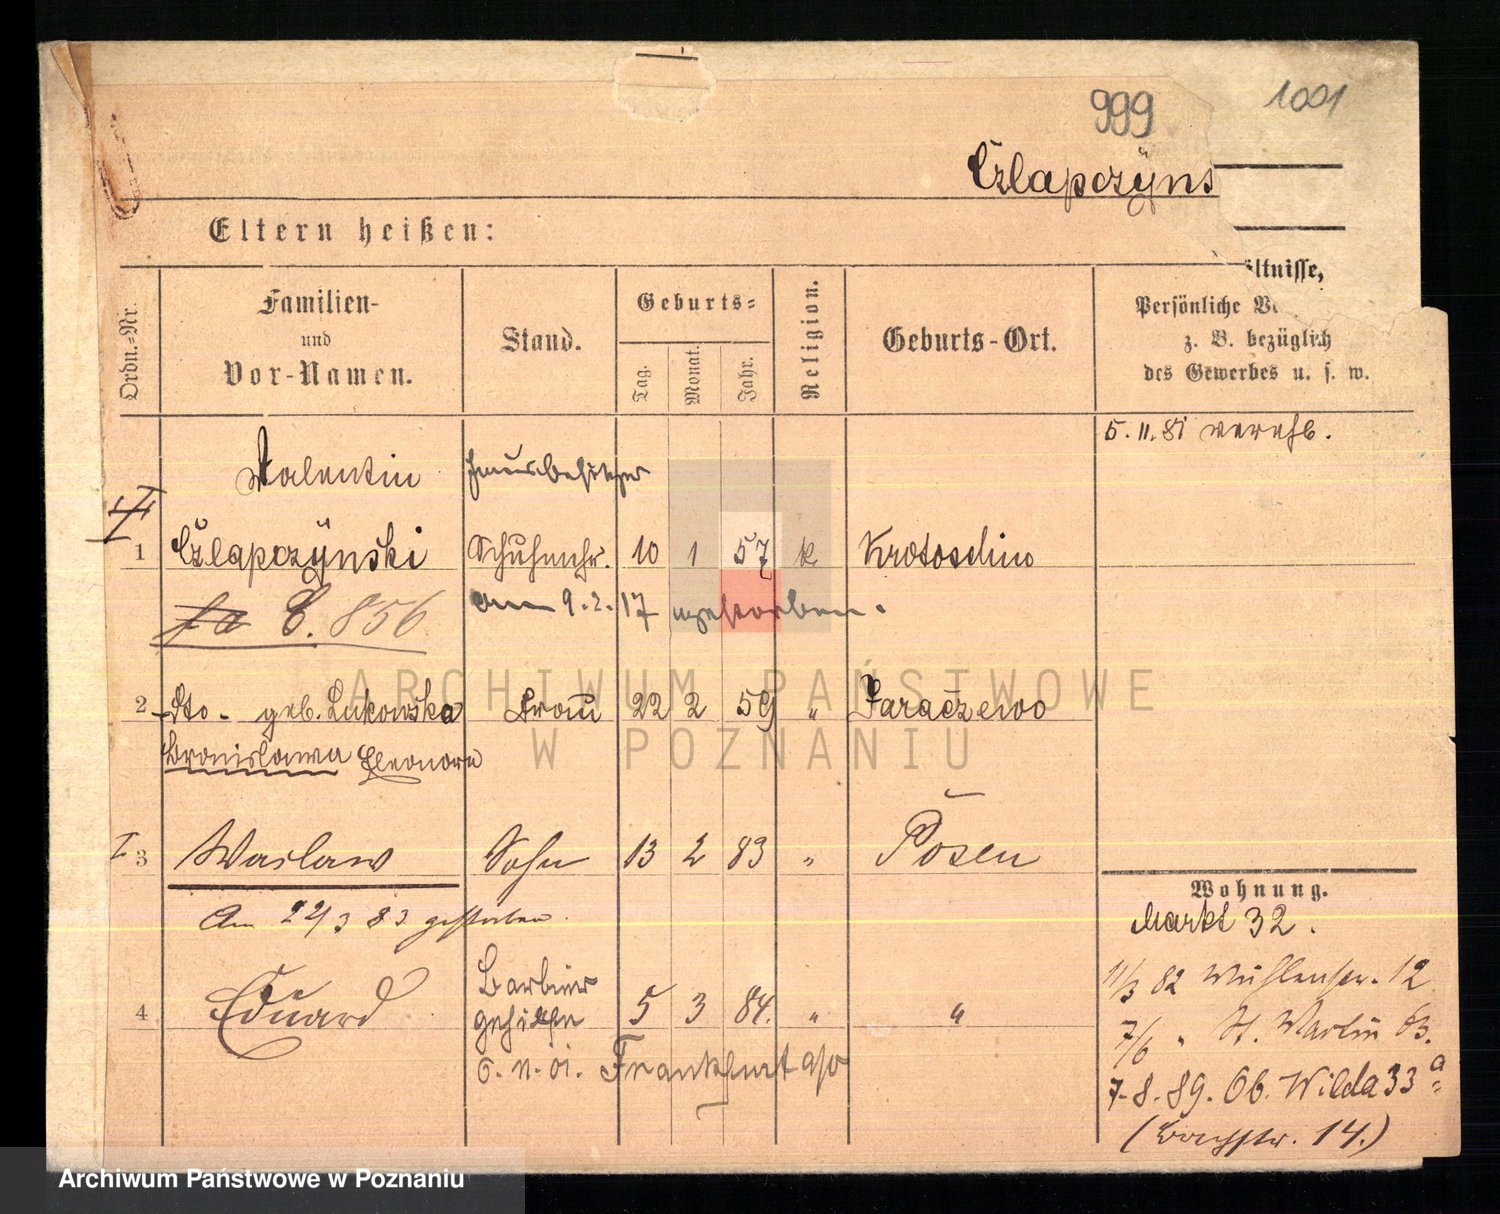 999 1001
Człapczÿns
Eltern heißen:
Ordn.-Nr.
Familien-
und
Vor-Namen.
Stand.
Geburts=
Tag.
Monat.
Jahr.
Religion.
Geburts-Ort.
ältnisse,
Persönliche Ve
z. B. bezüglich
des Gewerbes u. s. w.
5. 11. 81 verehl.
Valentin Hausbesitzer
1 Człapczÿnski Schuhmchr. 10 1 57 k. Krotoschin
C. 856 am 9. 2. 17 gestorben.
2 Dto. geb. Lukowska Frau 22 2 59 " Jaraczewo
Bronislawa Eleonora
I 3 Waslaw Sohn 13 2 83 " Posen
Am 22/3 83 gestorben.
4 Eduard Barbier 5 3 84. " "
gehilfe
6. 11. 01. Frankfurt a/o
Wohnung.
Markt 32.
11/3 82 Mühlenstr. 12
7/6 " St. Martin 63.
7. 8. 89. Ob. Wilda 33 a
(14.)
ARCHIWUM PAŃSTWOWE
W POZNANIU
Archiwum Państwowe w Poznaniu